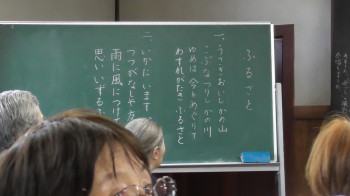 ふるさと
一、うさぎおいしかの山
こぶなつりしかの川
ゆめは今もめぐりて
わすれがたきふるさと
二、いかにいます
つつがなしや
雨に風につけ
思いいずる